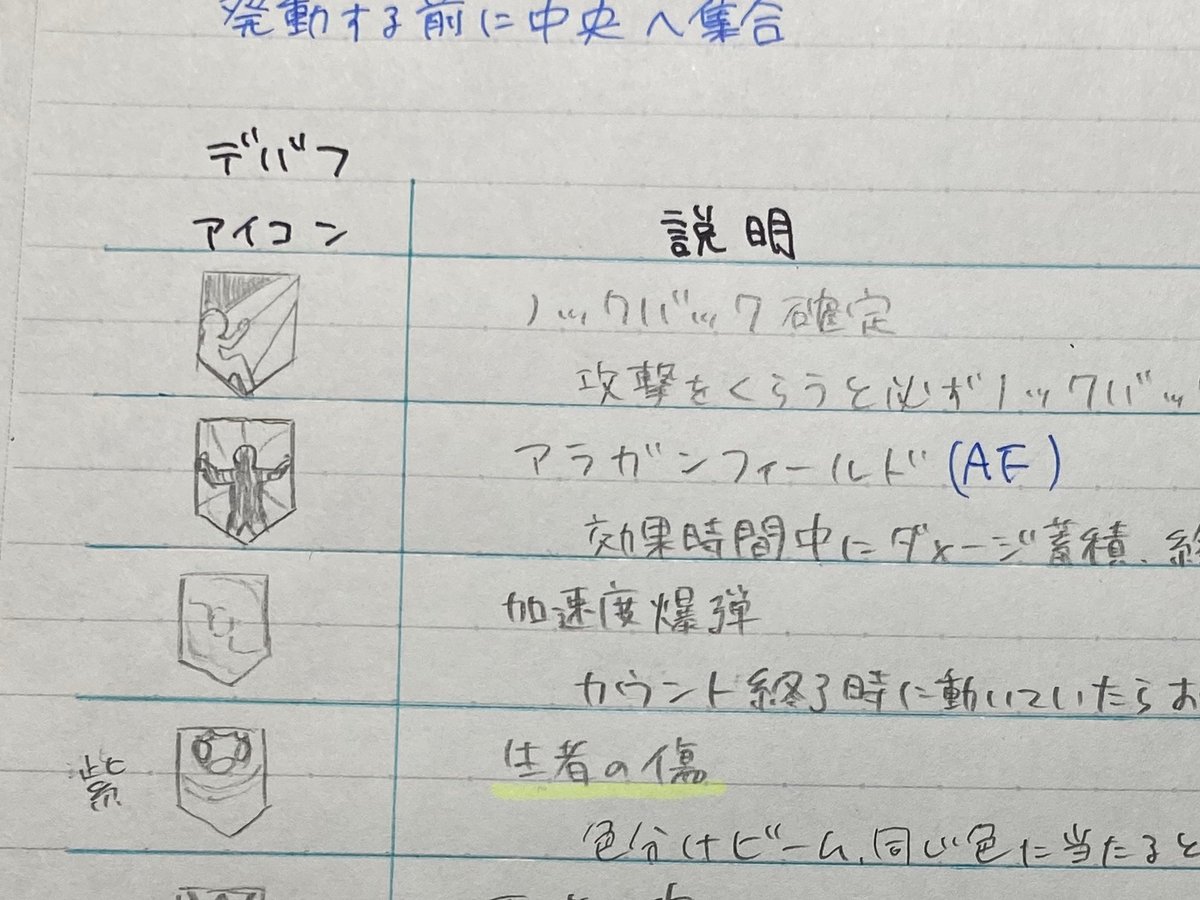 発動する前に中央へ集合
デバフ
アイコン
説明
ノックバック確定
攻撃をくらうと必ずノックバッ
アラガンフィールド(AF)
効果時間中にダメージ蓄積、終
加速度爆弾
カウント終了時に動いていたらお
紫
生者の傷
色分けビーム、同じ色に当たると